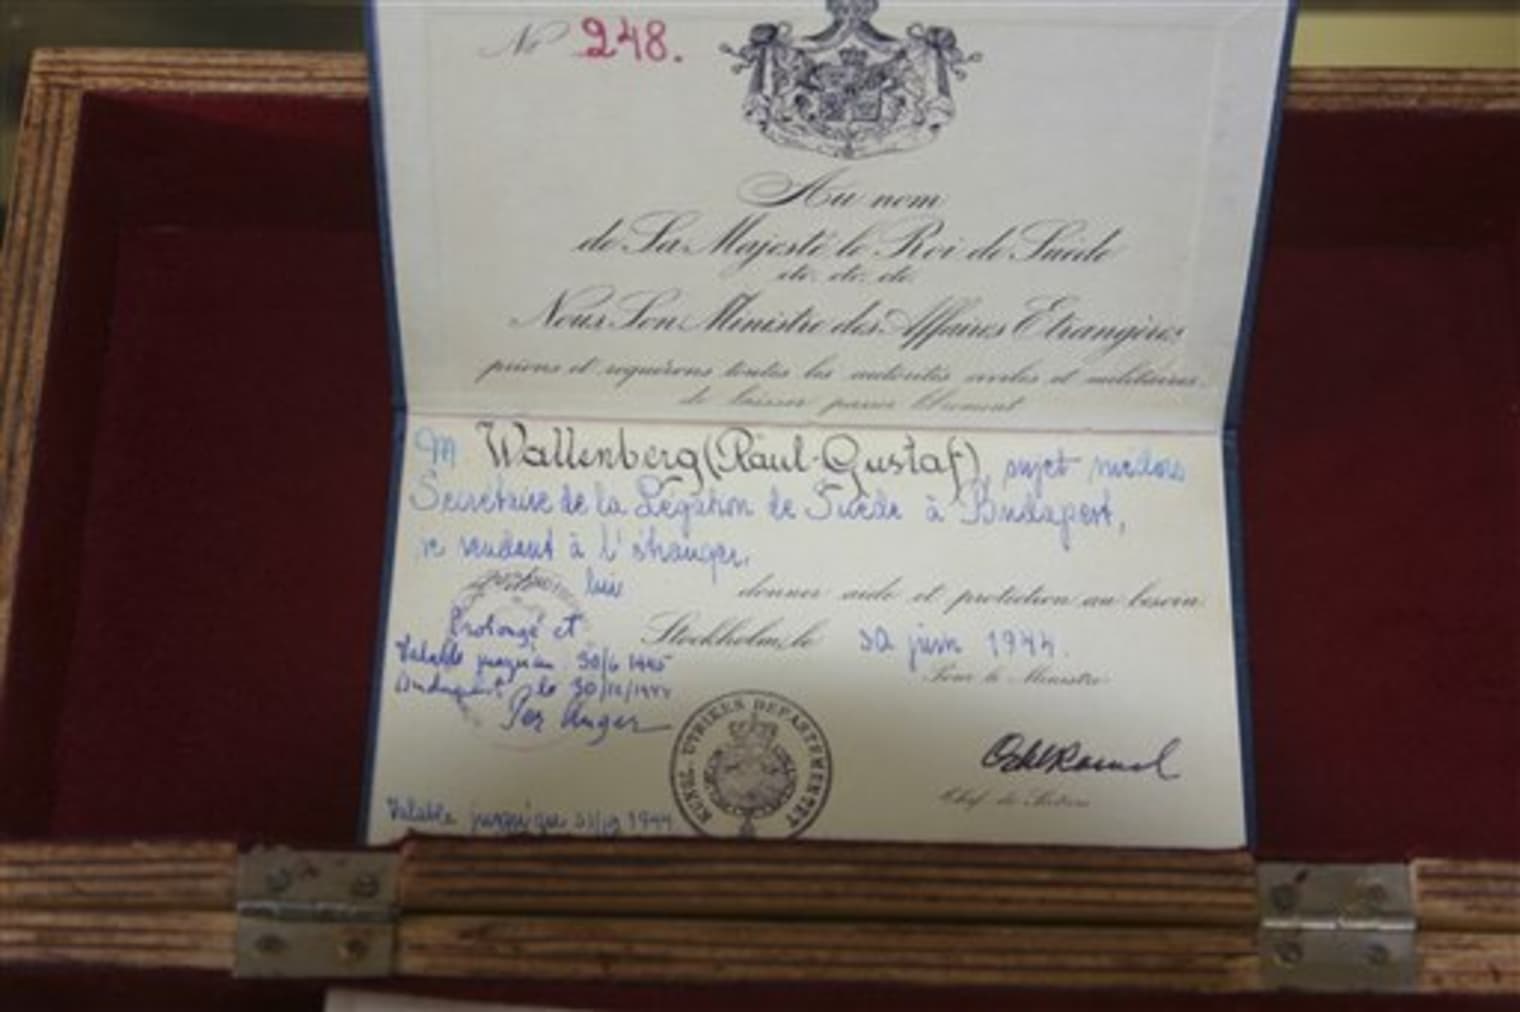 No 248.
Au nom
de Sa Majesté le Roi de Suède
etc. etc. etc.
Nous Son Ministre des Affaires Etrangères
prions et requérons toutes les autorités civiles et militaires
de laisser passer librement
M Wallenberg (Raul-Gustaf), sujet suédois
Secrétaire de la Légation de Suède à Budapest,
se rendant à l'étranger,
lui donner aide et protection au besoin.
Prolongé et
Stockholm, le 30 juin 1944.
Valable jusqu'au 30/6 1945
Pour le Ministre
Budapest le 30/12/1944
Per Anger
KUNGL. UTRIKES DEPARTEMENTET
Chef de Section
Valable jusqu'au 31/12 1944